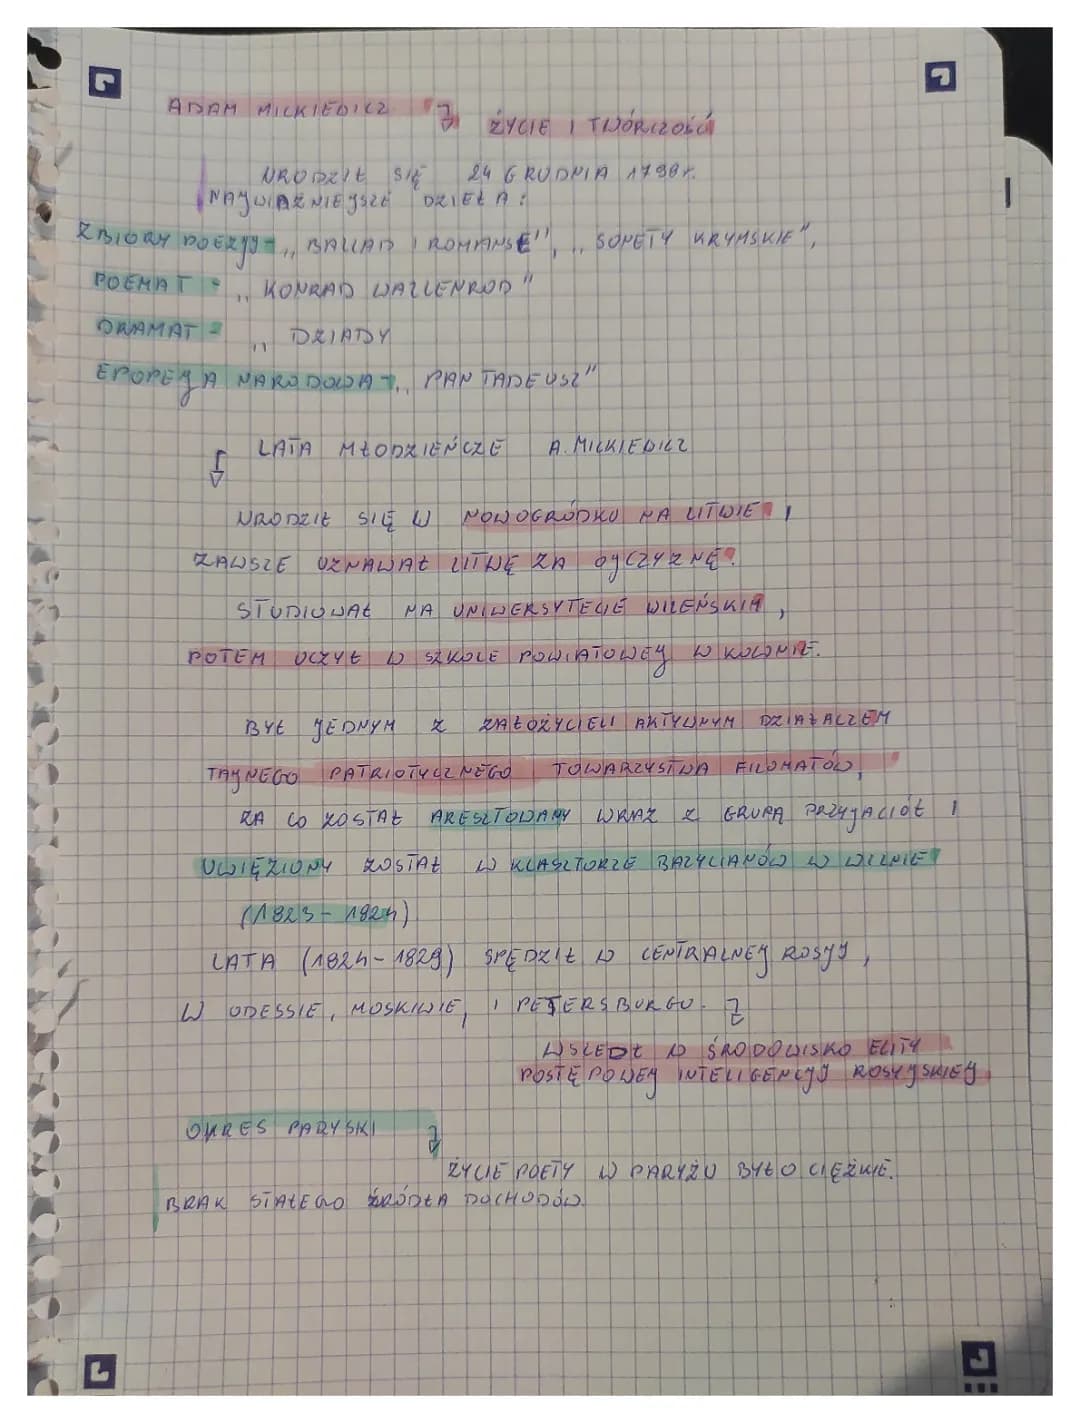 ADAM MICKIEWICZ
ŻYCIE I TWÓRCZOŚĆ
URODZIŁ SIĘ 24 GRUDNIA 1798r.
NAJWAŻNIEJSZE DZIEŁA:
ZBIORY POEZJI - „BALLAD I ROMANSE", „SONETY KRYMSKIE",
POEMAT - „KONRAD WALLENROD"
DRAMAT - „DZIADY
EPOPEJA NARODOWA - „PAN TADEUSZ"
LATA MŁODZIEŃCZE A. MICKIEWICZ
URODZIŁ SIĘ W NOWOGRÓDKU NA LITWIE,
ZAWSZE UZNAWAŁ LITWĘ ZA OJCZYZNĘ.
STUDIOWAŁ NA UNIWERSYTECIE WILEŃSKIM,
POTEM UCZYŁ W SZKOLE POWIATOWEJ W KOWNIE.
BYŁ JEDNYM Z ZAŁOŻYCIELI AKTYWNYM DZIAŁACZEM
TAJNEGO PATRIOTYCZNEGO TOWARZYSTWA FILOMATÓW,
ZA CO ZOSTAŁ ARESZTOWANY WRAZ Z GRUPĄ PRZYJACIÓŁ I
UWIĘZIONY ZOSTAŁ W KLASZTORZE BAZYLIANÓW W WILNIE
(1823-1824)
LATA (1824-1829) SPĘDZIŁ W CENTRALNEJ ROSJI,
W ODESSIE, MOSKWIE, I PETERSBURGU.
WSZEDŁ W ŚRODOWISKO ELITY
POSTĘPOWEJ INTELIGENCJI ROSYJSKIEJ
OKRES PARYSKI
ŻYCIE POETY W PARYŻU BYŁO CIĘŻKIE.
BRAK STAŁEGO ŹRÓDŁA DOCHODÓW.